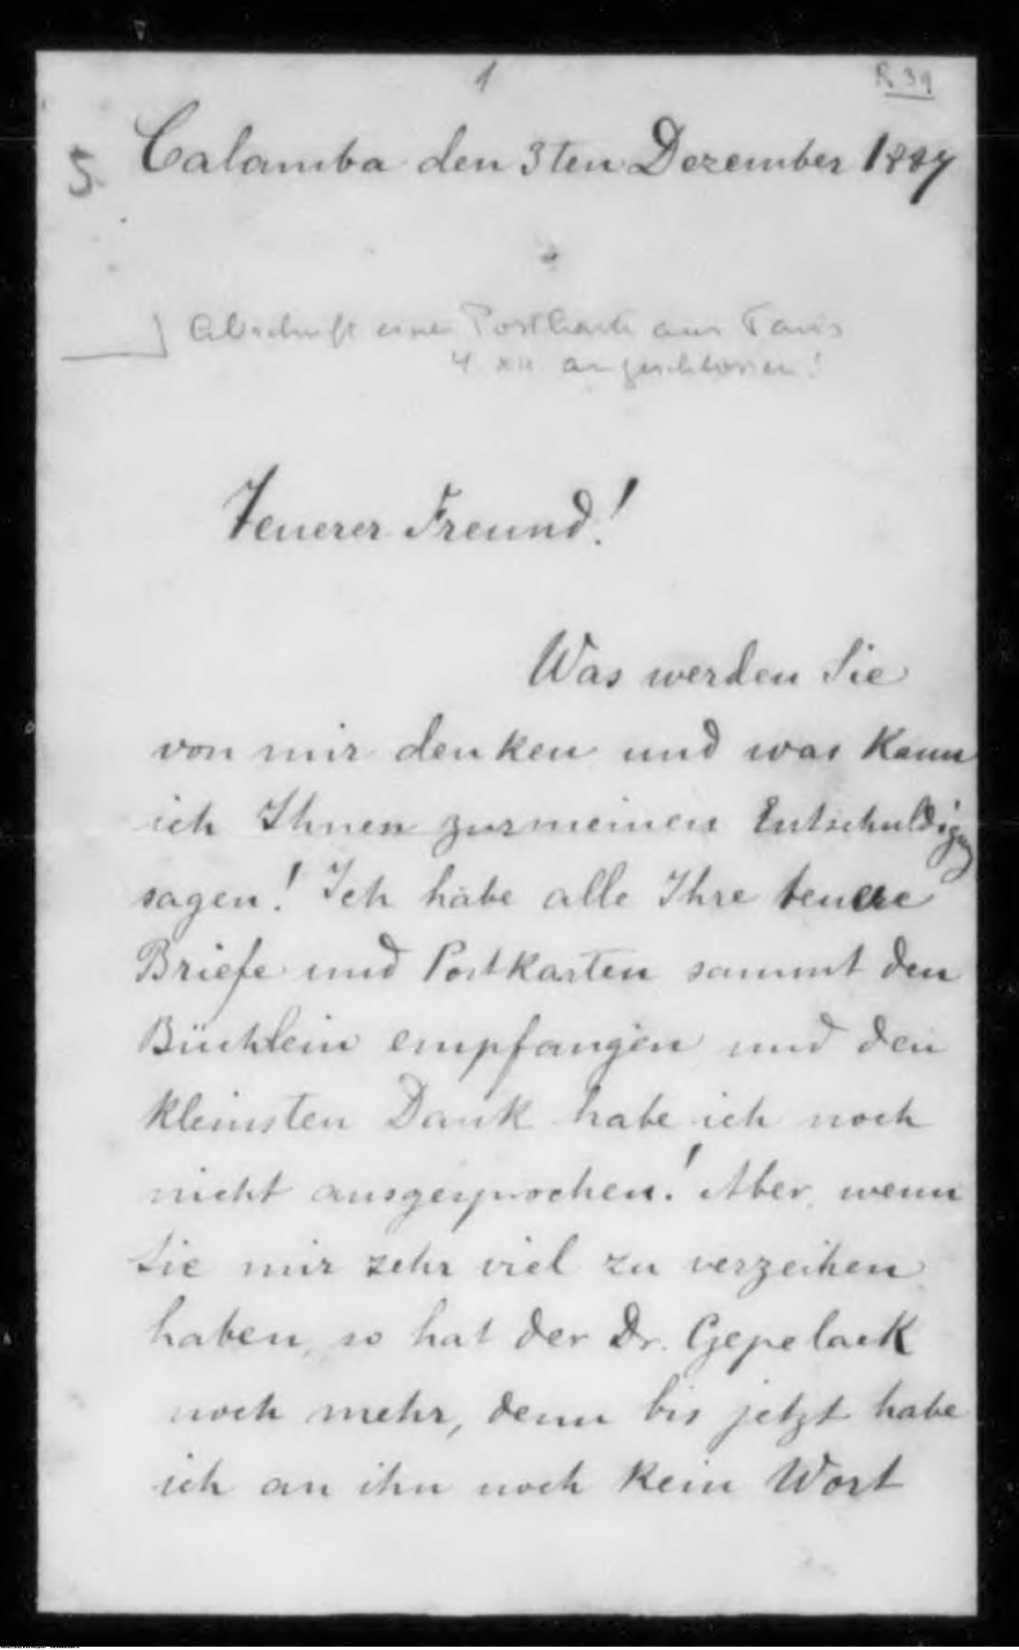 1
R 39
5. Calamba den 3ten Dezember 1887
Abschrift einer Postkarte aus Paris
4 XII angeschlossen!
Teuerer Freund!
Was werden Sie
von mir denken und was kann
ich Ihnen zur meinen Entschuldigung
sagen! Ich habe alle Ihre teuere
Briefe und Postkarten sammt den
Büchlein empfangen und den
kleinsten Dank habe ich noch
nicht ausgesprochen! Aber, wenn
Sie mir zehr viel zu verzeihen
haben, so hat der Dr. Czepelack
noch mehr, denn bis jetzt habe
ich an ihn noch kein Wort